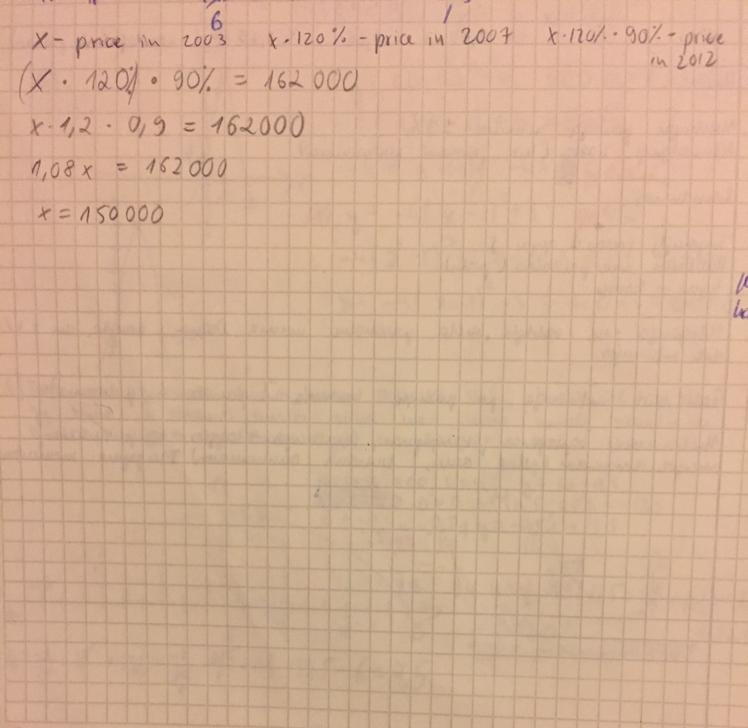 6
x - price in 2003 x · 120% - price in 2007 x · 120% · 90% - price
in 2012
(x · 120%) · 90% = 162 000
x · 1,2 · 0,9 = 162000
1,08x = 162000
x = 150000